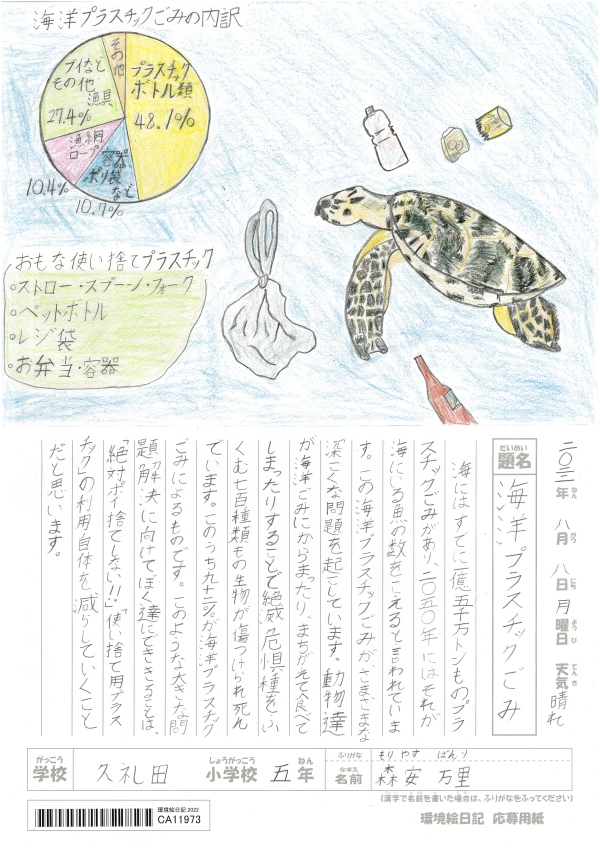 海洋プラスチックごみの内訳
その他
プラスチック
ボトル類
48.1%
ブイなど
その他
漁具
27.4%
漁網
ロープ
10.4%
容器、
ポリ袋
など
10.7%
おもな使い捨てプラスチック
ストロー・スプーン・フォーク
ペットボトル
レジ袋
お弁当・容器
年 八月 八日 月曜日 天気 晴れ
ねん がつ にち ようび てんき
だいめい
題名 海洋プラスチックごみ
海にはすでに一億五千万トンものプラ
スチックごみがあり、二〇五〇年にはそれが
海にいる魚の数をこえると言われていま
す。この海洋プラスチックごみがさまざまな
深こくな問題を起こしています。動物達
が海洋ごみにからまったり、まちがえて食べて
しまったりすることで絶滅危惧種をふ
くむ七百種類もの生物が傷つけられ死ん
でいます。このうち九十二%が海洋プラスチック
ごみによるものです。このような大きな問
題解決に向けてぼく達にでききることは、
「絶対ポイ捨てしない!!」「使い捨て用プラス
チック」の利用自体を減らしていくこと
だと思います。
がっこう
学校 久礼田
しょうがっこう ねん
小学校 五年
ふりがな もりやす ばんり
なまえ
名前 森安 万里
(漢字で名前を書いた場合は、ふりがなをふってください)
環境絵日記 2022
CA11973
環境絵日記 応募用紙